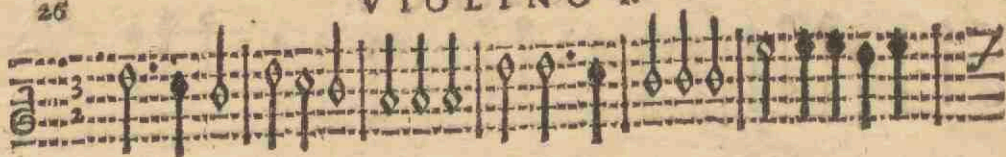 26
VIOLINO
3
2